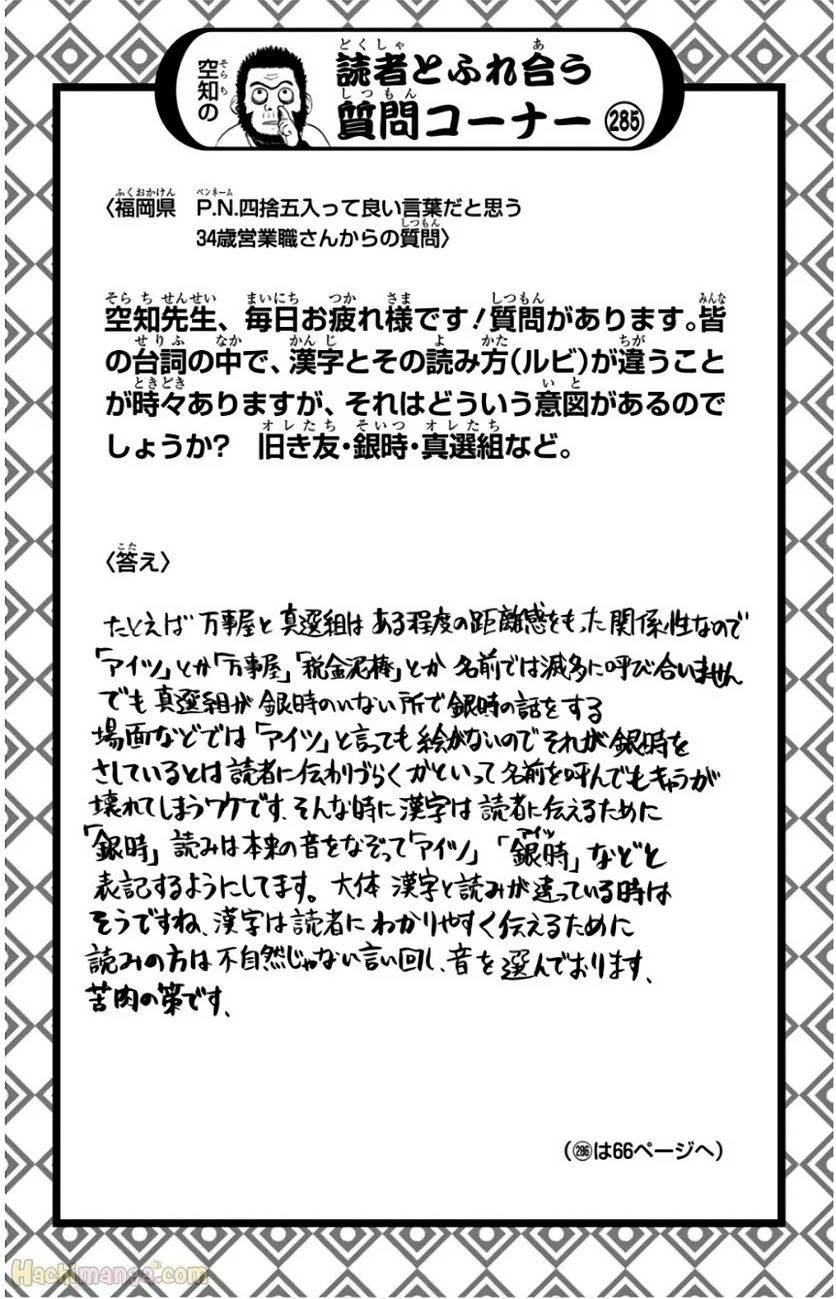 空知の
読者とふれ合う
質問コーナー 285
〈福岡県 P.N.四捨五入って良い言葉だと思う
34歳営業職さんからの質問〉
空知先生、毎日お疲れ様です!質問があります。皆
の台詞の中で、漢字とその読み方(ルビ)が違うこと
が時々ありますが、それはどういう意図があるので
しょうか? 旧き友・銀時・真選組など。
〈答え〉
たとえば万事屋と真選組はある程度の距離感をもった関係性なので
「アイツ」とか「万事屋」「税金泥棒」とか名前では滅多に呼び合いません
でも真選組が銀時のいない所で銀時の話をする
場面などでは「アイツ」と言っても絵がないのでそれが銀時を
さしているとは読者に伝わりづらくかといって名前を呼んでもキャラが
壊れてしまうワケです、そんな時に漢字は読者に伝えるために
「銀時」読みは本来の音をなぞって「アイツ」「銀時」などと
表記するようにしてます。大体漢字と読みが違っている時は
そうですね、漢字は読者にわかりやすく伝えるために
読みの方は不自然じゃない言い回し、音を選んでおります、
苦肉の策です、
(286は66ページへ)
Hachimanga.com